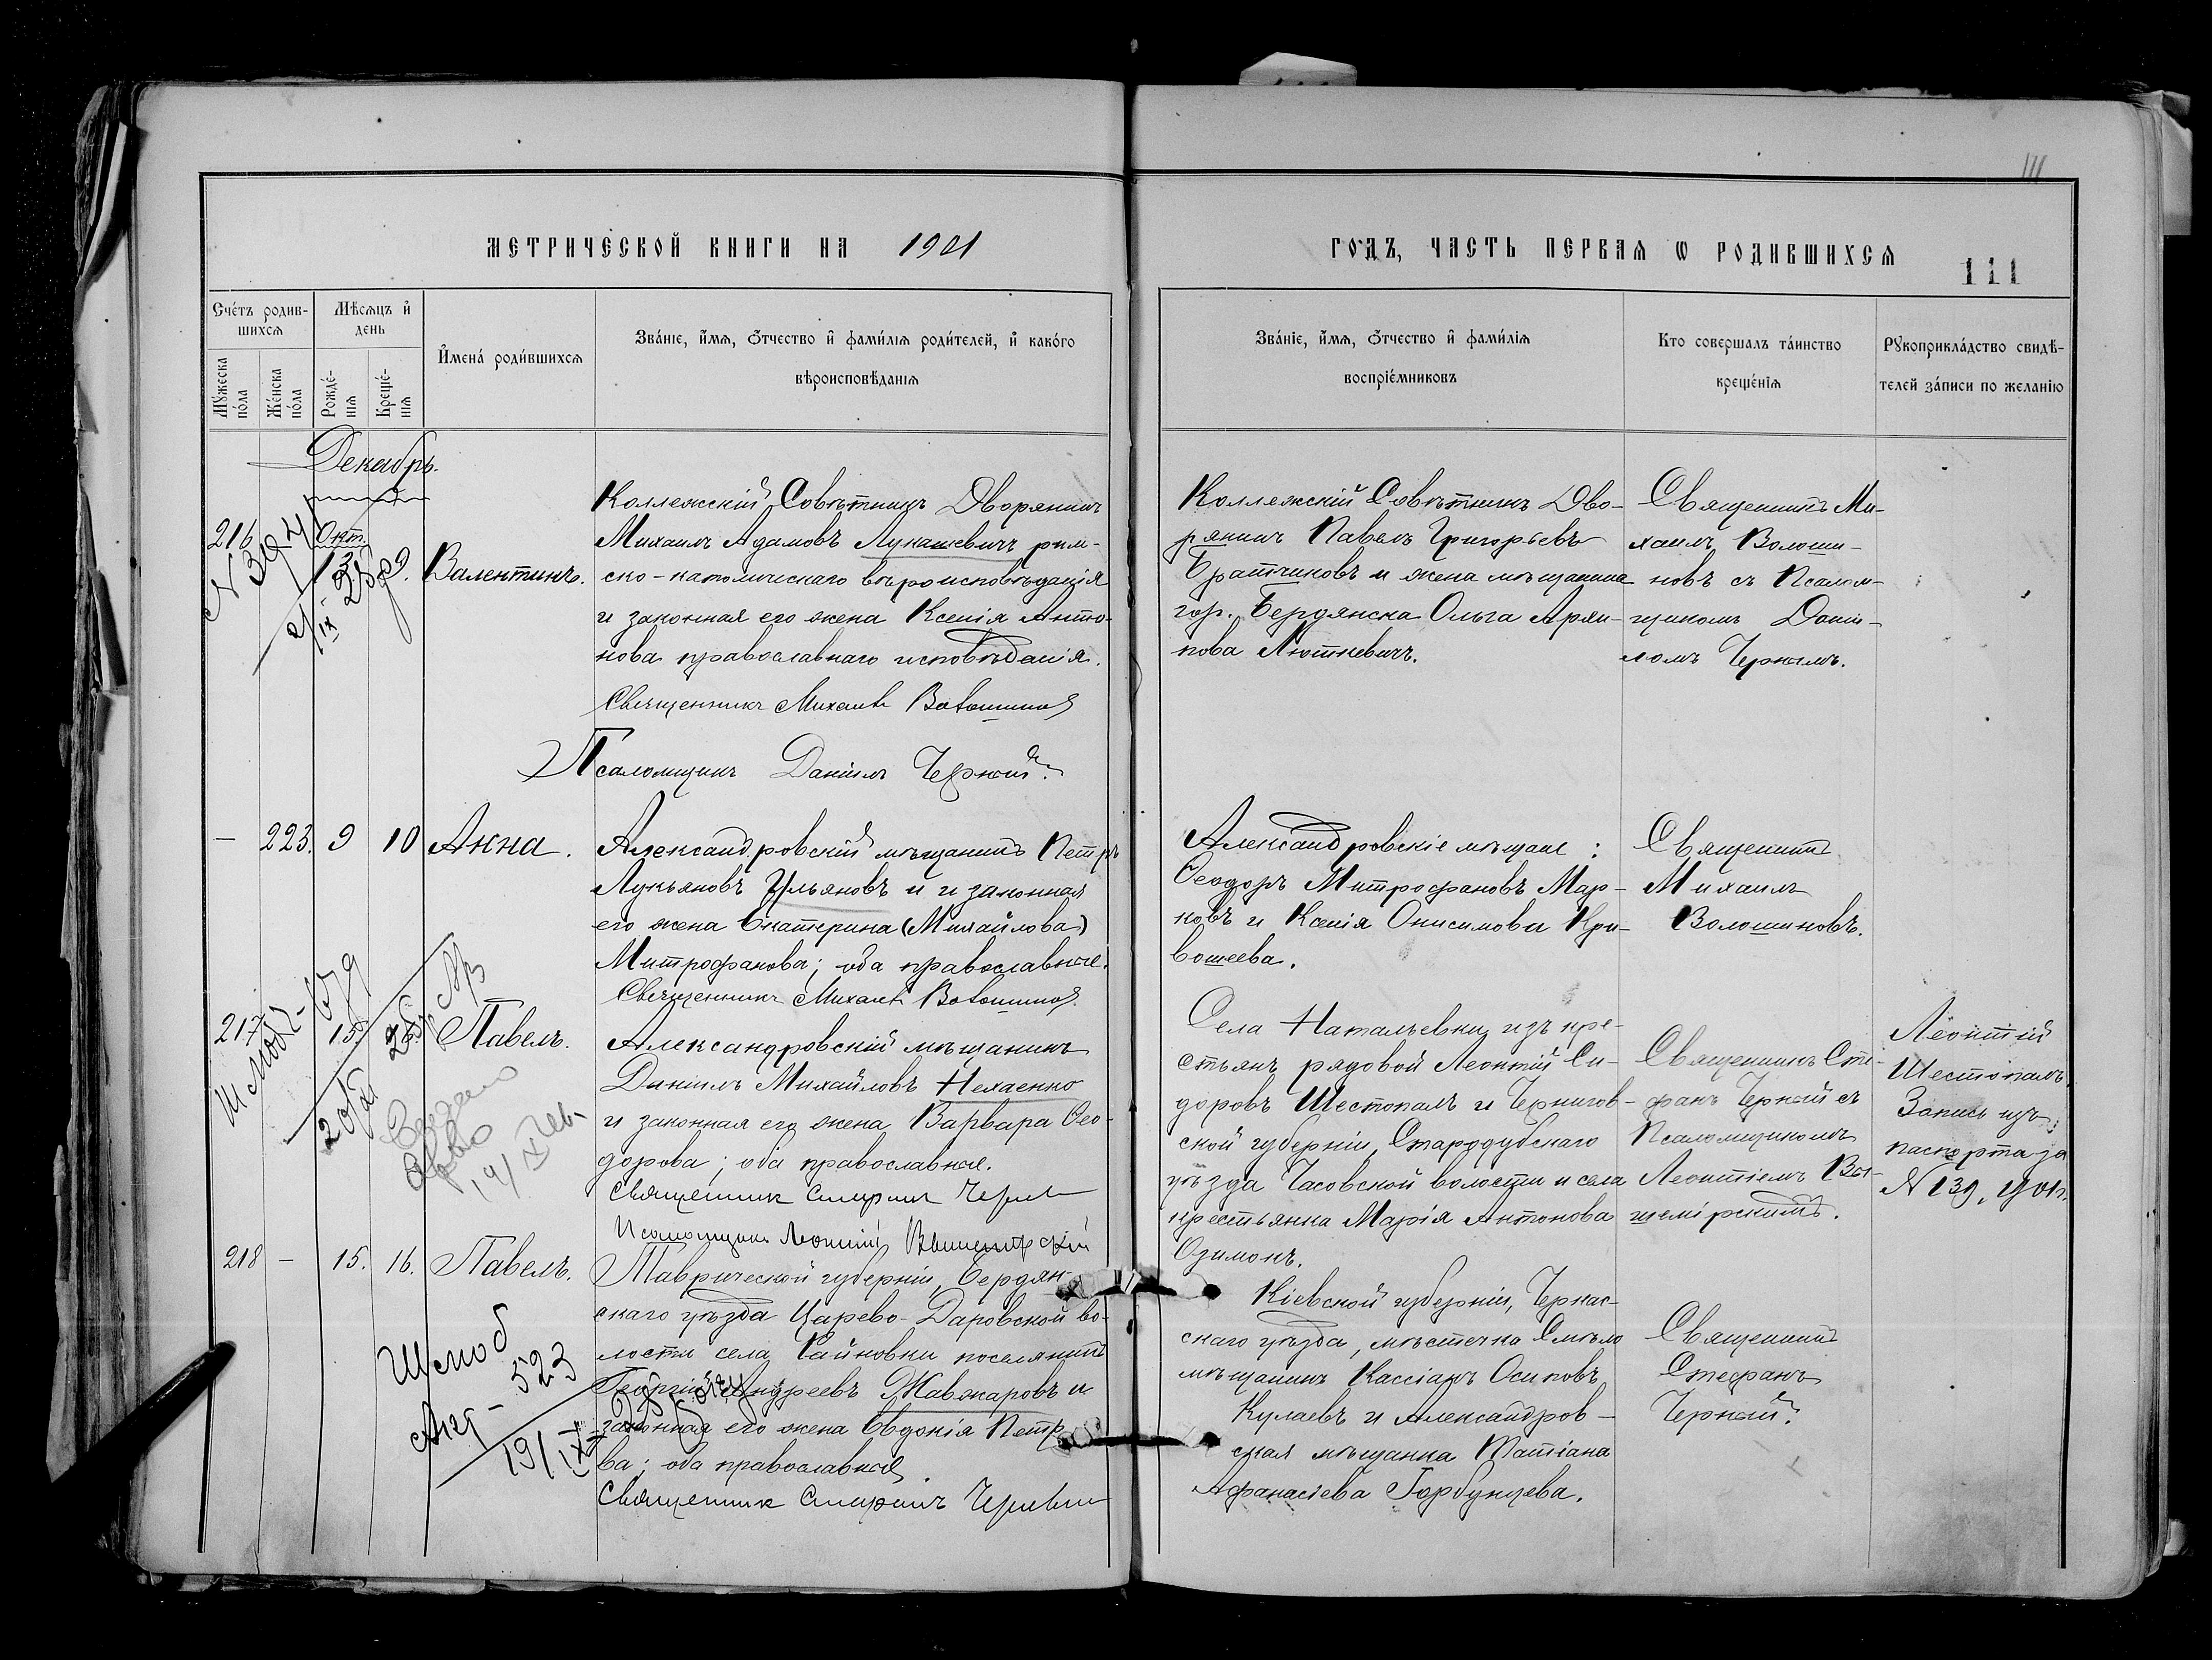 111
МЕТРИЧЕСКОЙ КНИГИ НА 1901
ГОДЪ, ЧАСТЬ ПЕРВАЯ Ѡ РОДИВШИХСЯ
111
Счетъ родив-
шихся
Мѣсяцъ и
день
Мужеска
пола
Женска
пола
Рожде-
нія
Креще-
нія
Имена родившихся
Званіе, имя, отчество и фамилія родителей, и какого
вѣроисповѣданія
Званіе, имя, отчество и фамилія
воспріемниковъ
Кто совершалъ таинство
крещенія
Рукоприкладство свидѣ-
телей записи по желанію
Декабрь.
216
Окт.
13
9.
Валентинъ.
Коллежскій Совѣтникъ Дворянинъ
Михаилъ Адамовъ Лукашевичъ рим-
ско-католическаго вѣроисповѣданія
и законная его жена Ксенія Анто-
нова православнаго исповѣданія.
Священникъ Михаилъ Волошиновъ
Псаломщикъ Даніилъ Черный.
Коллежскій Совѣтникъ Дво-
рянинъ Павелъ Григорьевъ
Братчиковъ и жена мѣщанина
гор. Бердянска Ольга
Люткевичъ.
Священникъ Ми-
хаилъ Волоши-
новъ съ Псалом-
щикомъ Дані-
ломъ Чернымъ.
— 223. 9 10 Анна.
Александровскій мѣщанинъ Петръ
Лукьяновъ Ульяновъ и и законная
его жена Екатерина (Михайлова)
Митрофанова; оба православные.
Священникъ Михаилъ Волошиновъ
Александровскіе мѣщане:
Ѳеодоръ Митрофановъ Мар-
ковъ и Ксенія Онисимова Кри-
вошеева.
Священникъ
Михаилъ
Волошиновъ.
217
15.
Павелъ.
Александровскій мѣщанинъ
Даніилъ Михайловъ Нехаенко
и законная его жена Варвара Ѳео-
дорова; оба православные.
Священникъ Стефанъ Черный
Псаломщикъ Леонтій Вышемірскій
Села Натальевки изъ кре-
стьянъ рядовой Леонтій Си-
доровъ Шестопалъ и Чернигов-
ской губерніи, Стародубскаго
уѣзда Часовской волости и села
крестьянка Марія Антонова
Озимокъ.
Священникъ Сте-
фанъ Черный съ
Псаломщикомъ
Леонтіемъ Вы-
шемірскимъ.
Леонтій
Шестопалъ
Запись изъ
паспорта за
N 139, 901 г.
218 — 15. 16. Павелъ.
Таврической губерніи, Бердян-
скаго уѣзда Царево-Даровской во-
лости села Райновки поселянинъ
Георгій Андреевъ Жавжаровъ и
законная его жена Евдокія Петро-
ва; оба православные.
Священникъ Стефанъ Черный
Кіевской губерніи, Черкас-
скаго уѣзда, мѣстечка Смѣло
мѣщанинъ Кассіанъ Осиповъ
Кулаевъ и Александров-
ская мѣщанка Татіана
Афанасіева Горбунцева.
Священникъ
Стефанъ
Черный.
523